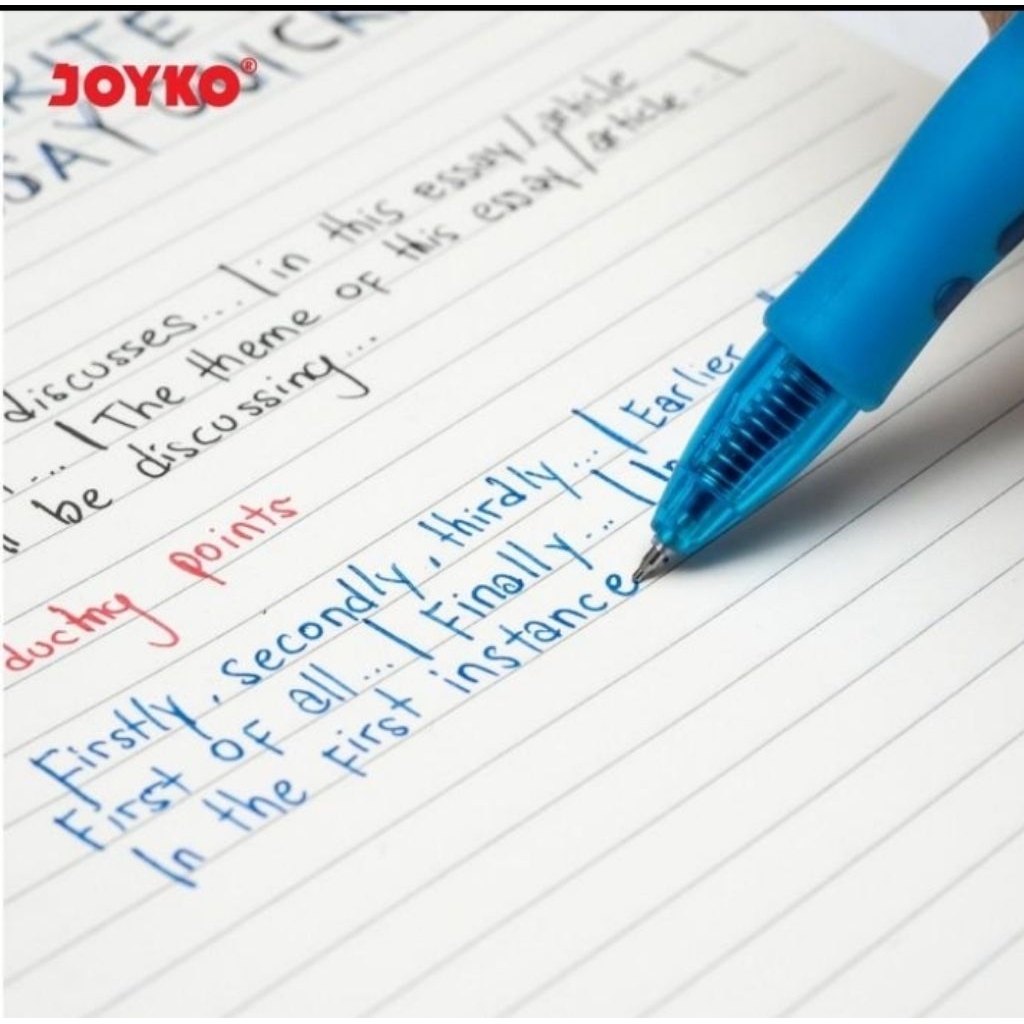 JOYKO®
discusses... | in this essay/article
... | The theme of this essay/article... |
be discussing...
points
Firstly, secondly, thirdly... | Earlier
First of all... | Finally... |
In the first instance